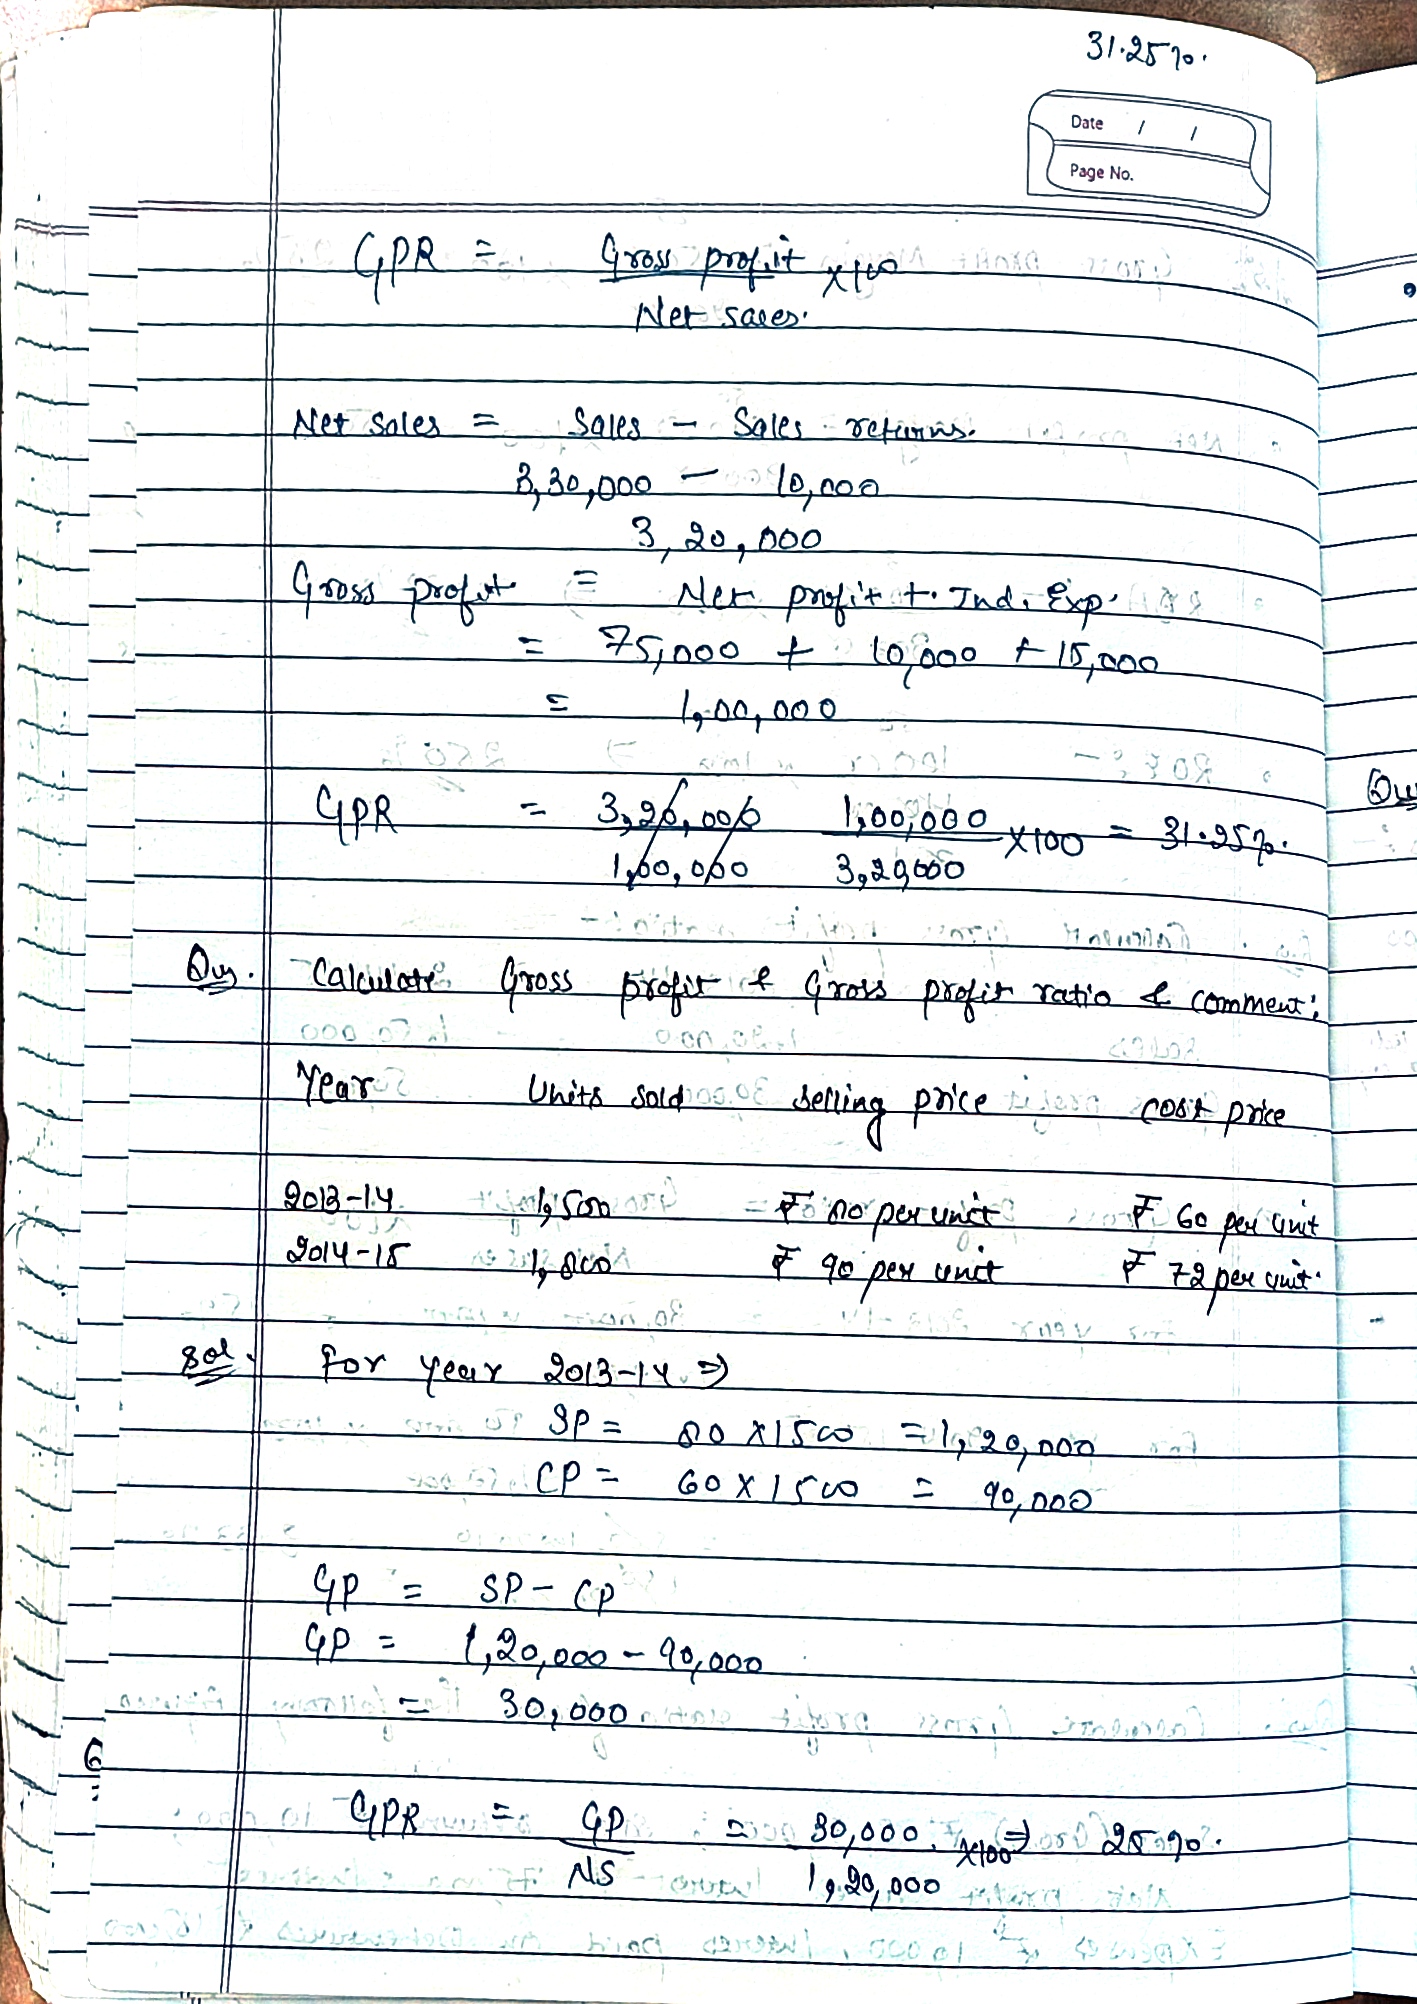 31.25%.
Date / /
Page No.
GPR = Gross profit x100
Net sales.
Net sales = Sales - Sales returns.
3,30,000 - 10,000
3,20,000
Gross profit = Net profit + Ind. Exp.
= 75,000 + 10,000 + 15,000
= 1,00,000
GPR = 3,20,000 1,00,000 x100 = 31.25%.
1,00,000 3,20,000
Qus. Calculate Gross profit & Gross profit ratio & comment:
Year Units sold selling price cost price
2013-14 1,500 ₹ 80 per unit ₹ 60 per unit
2014-15 1,800 ₹ 90 per unit ₹ 72 per unit.
Sol. for year 2013-14 ⇒
SP = 80 x 1500 = 1,20,000
CP = 60 x 1500 = 90,000
GP = SP - CP
GP = 1,20,000 - 90,000
= 30,000
GPR = GP = 30,000 x100 ⇒ 25%.
NS 1,20,000